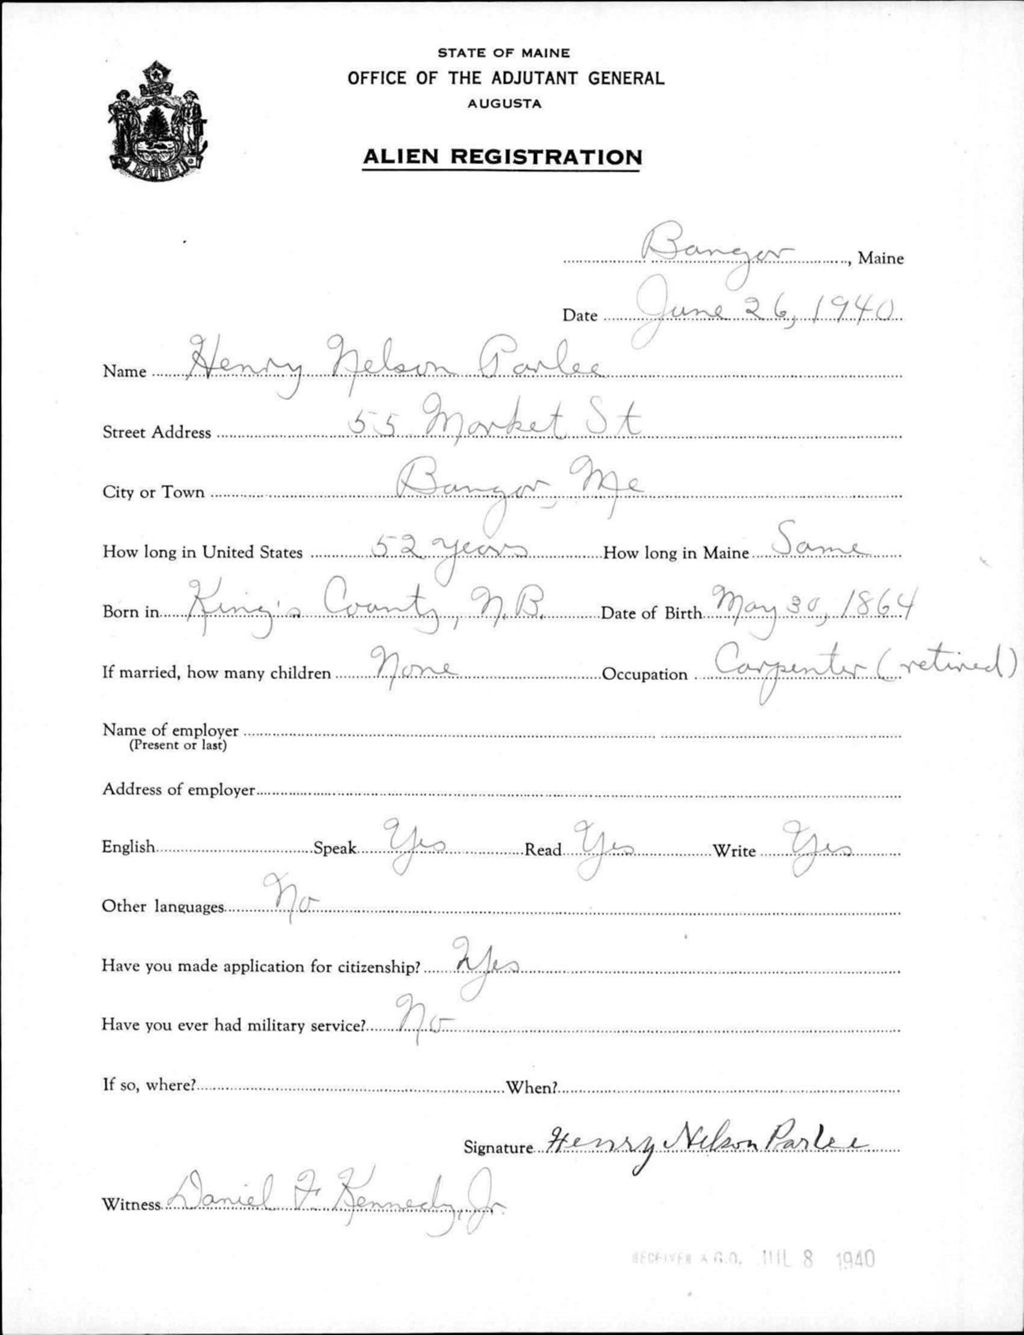 STATE OF MAINE
OFFICE OF THE ADJUTANT GENERAL
AUGUSTA
ALIEN REGISTRATION
MAINE
Bangor, Maine
Date June 26, 1940
Name Henry Nelson Parlee
Street Address 55 Market St
City or Town Bangor, Me
How long in United States 52 years How long in Maine Same
Born in King's County, N.B. Date of Birth May 30, 1864
If married, how many children None Occupation Carpenter (retired)
Name of employer
(Present or last)
Address of employer
English Speak Yes Read Yes Write Yes
Other languages No
Have you made application for citizenship? Yes
Have you ever had military service? No
If so, where? When?
Signature Henry Nelson Parlee
Witness Daniel F. Kennedy, Jr.
RECEIVED A.G.O. JUL 8 1940